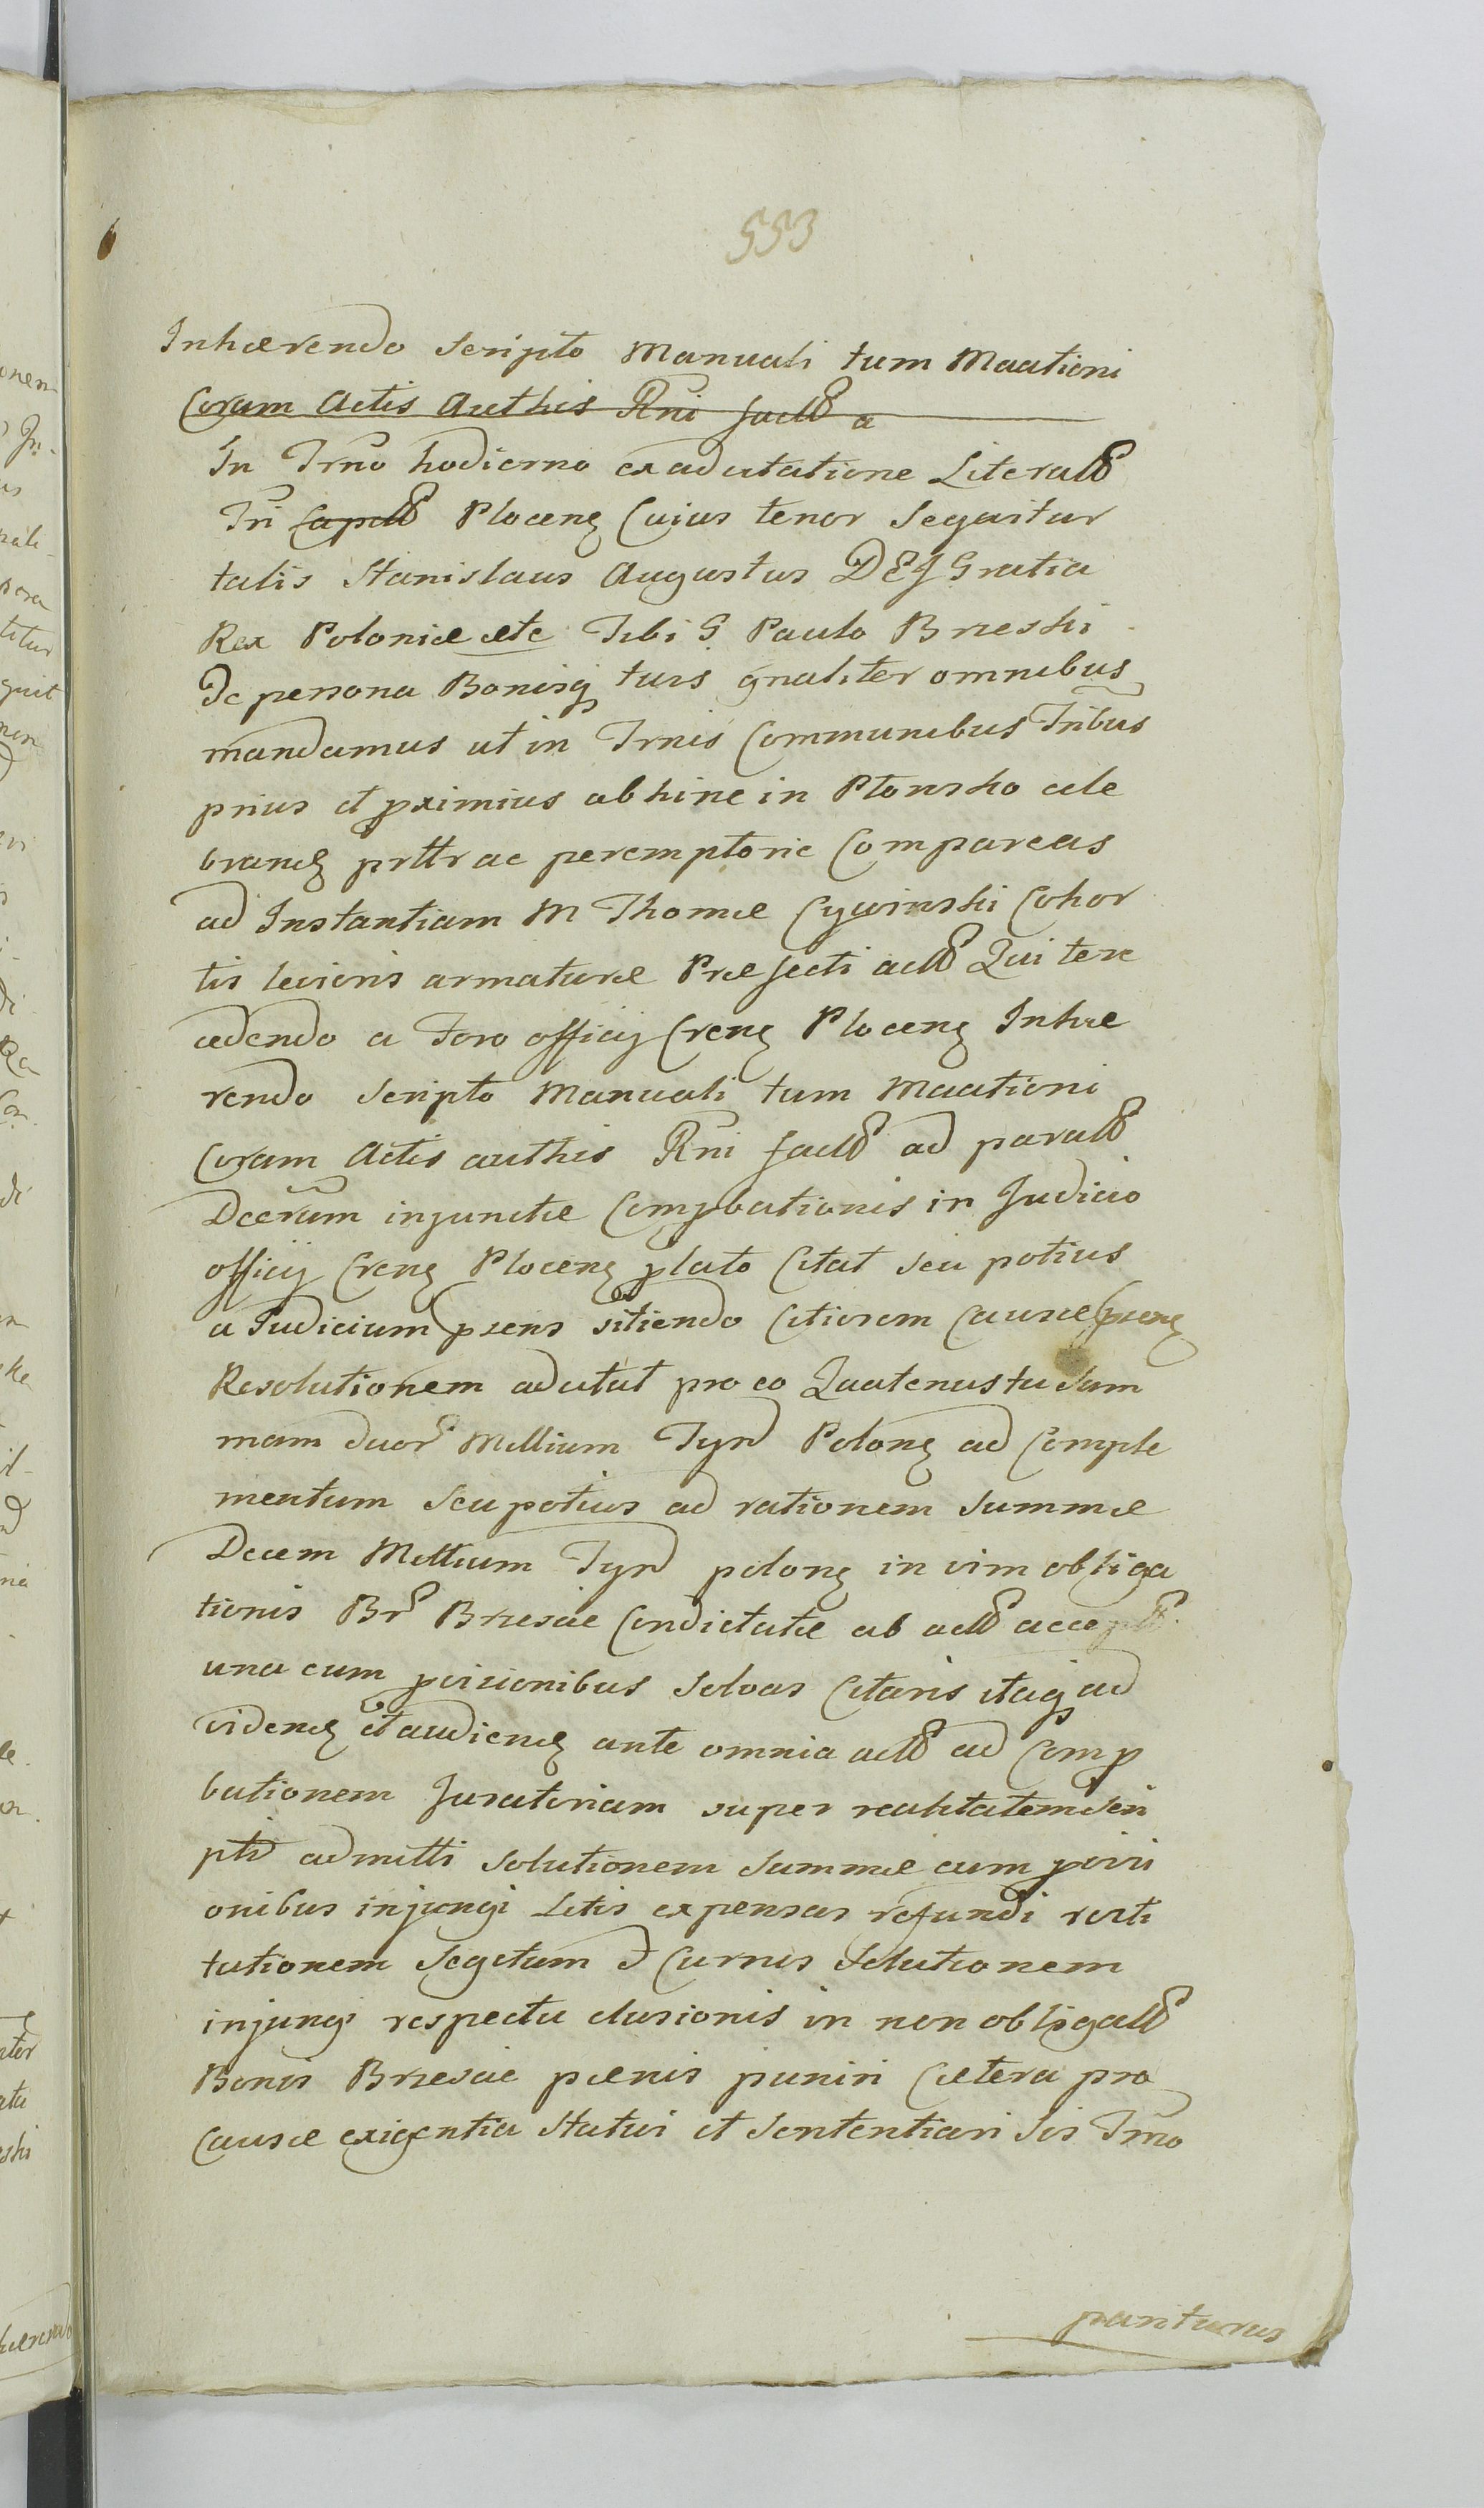 553
Inhærendo scripto Manuali tum Maationi
Coram Actis Authis Rni
In Trno hodierno ex adcitatione
Trii Plocen Cuius tenor Sequitur
talis Stanislaus Augustus DEJ Gratia
Rex Poloniæ etc Tibi G Paulo Brzeski
De persona Bonisq tuis gnaliter omnibus
mandamus ut in Trnis Communibus Tribus
prius et pximius abhinc in Płonsko cele
brand prltr ac peremptorie Compareas
ad Instantiam M Thomæ Cywinski Cohor
tis levioris armaturæ Præfecti Qui te re
cedendo a Foro officij Cren Plocen Inhæ
rendo scripto Manuali tum Maationi
Coram Actis authis Rni ad
Dcerum injunctæ Compbationis in Judicio
officij Cren Plocen plato Citat seu potius
a Judicium psens sitiendo Citiorem Causæ psen
Resolutionem adcitat pro eo Quatenus tu Sum
mam duor Millium Polon ad Comple
mentum seu potius ad rationem Summæ
Decem Millium polon in vim obliga
tionis Br Brzescie Condictatæ ab
una cum pvisionibus Solvas Citaris itaq ad
videnđ et audienđ ante omnia ad Comp
bationem Juratoriam super realitatem Scri
pti admitti solutionem Summæ cum pvisi
onibus injungi Litis expensas refundi resti
tutionem Segetum Currus Solutionem
injungi respectu elusionis in non
Bonis Brzescie pænis puniri Cætera pro
causæ exigentia Statui et Sententiari Sis Trno
pariturus